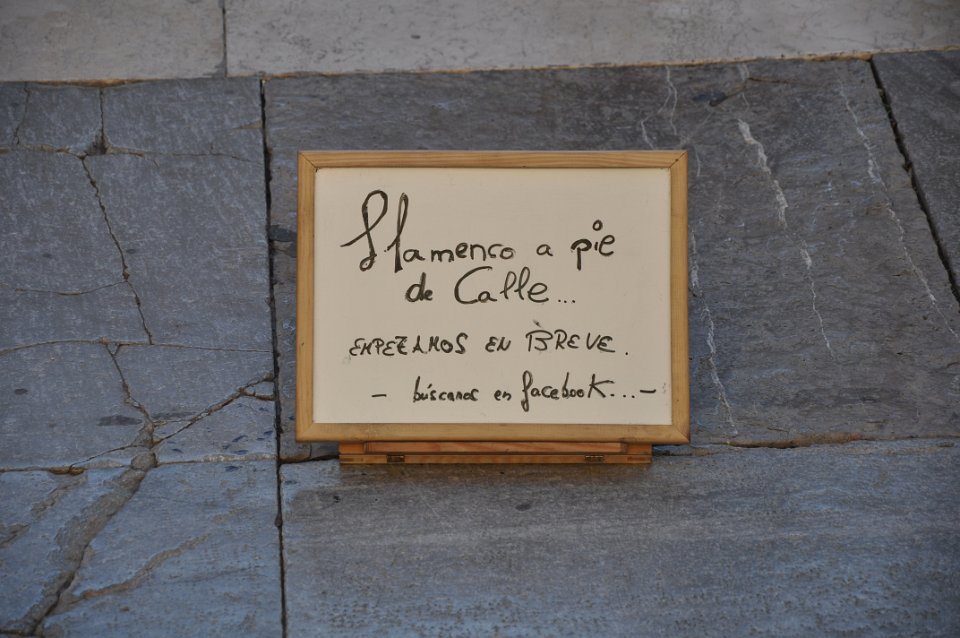 Flamenco a pie
de Calle...
EMPEZAMOS EN BREVE.
- búscanos en facebook...-